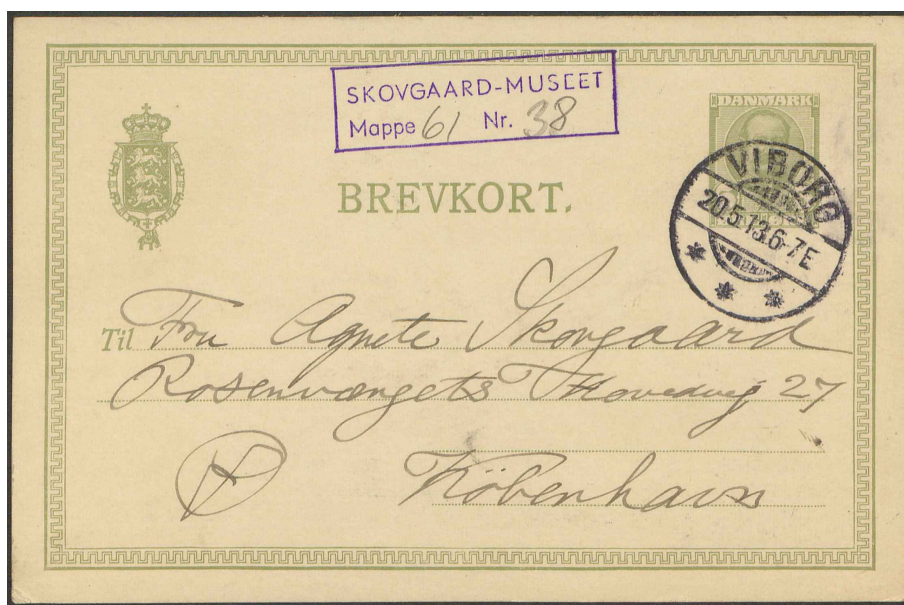 SKOVGAARD-MUSEET
Mappe 61 Nr. 38
DANMARK
BREVKORT.
VIBORG
20.5.13.6-7E
Til Fru Agnete Skovgaard
Rosenvængets Hovedvej 27
København